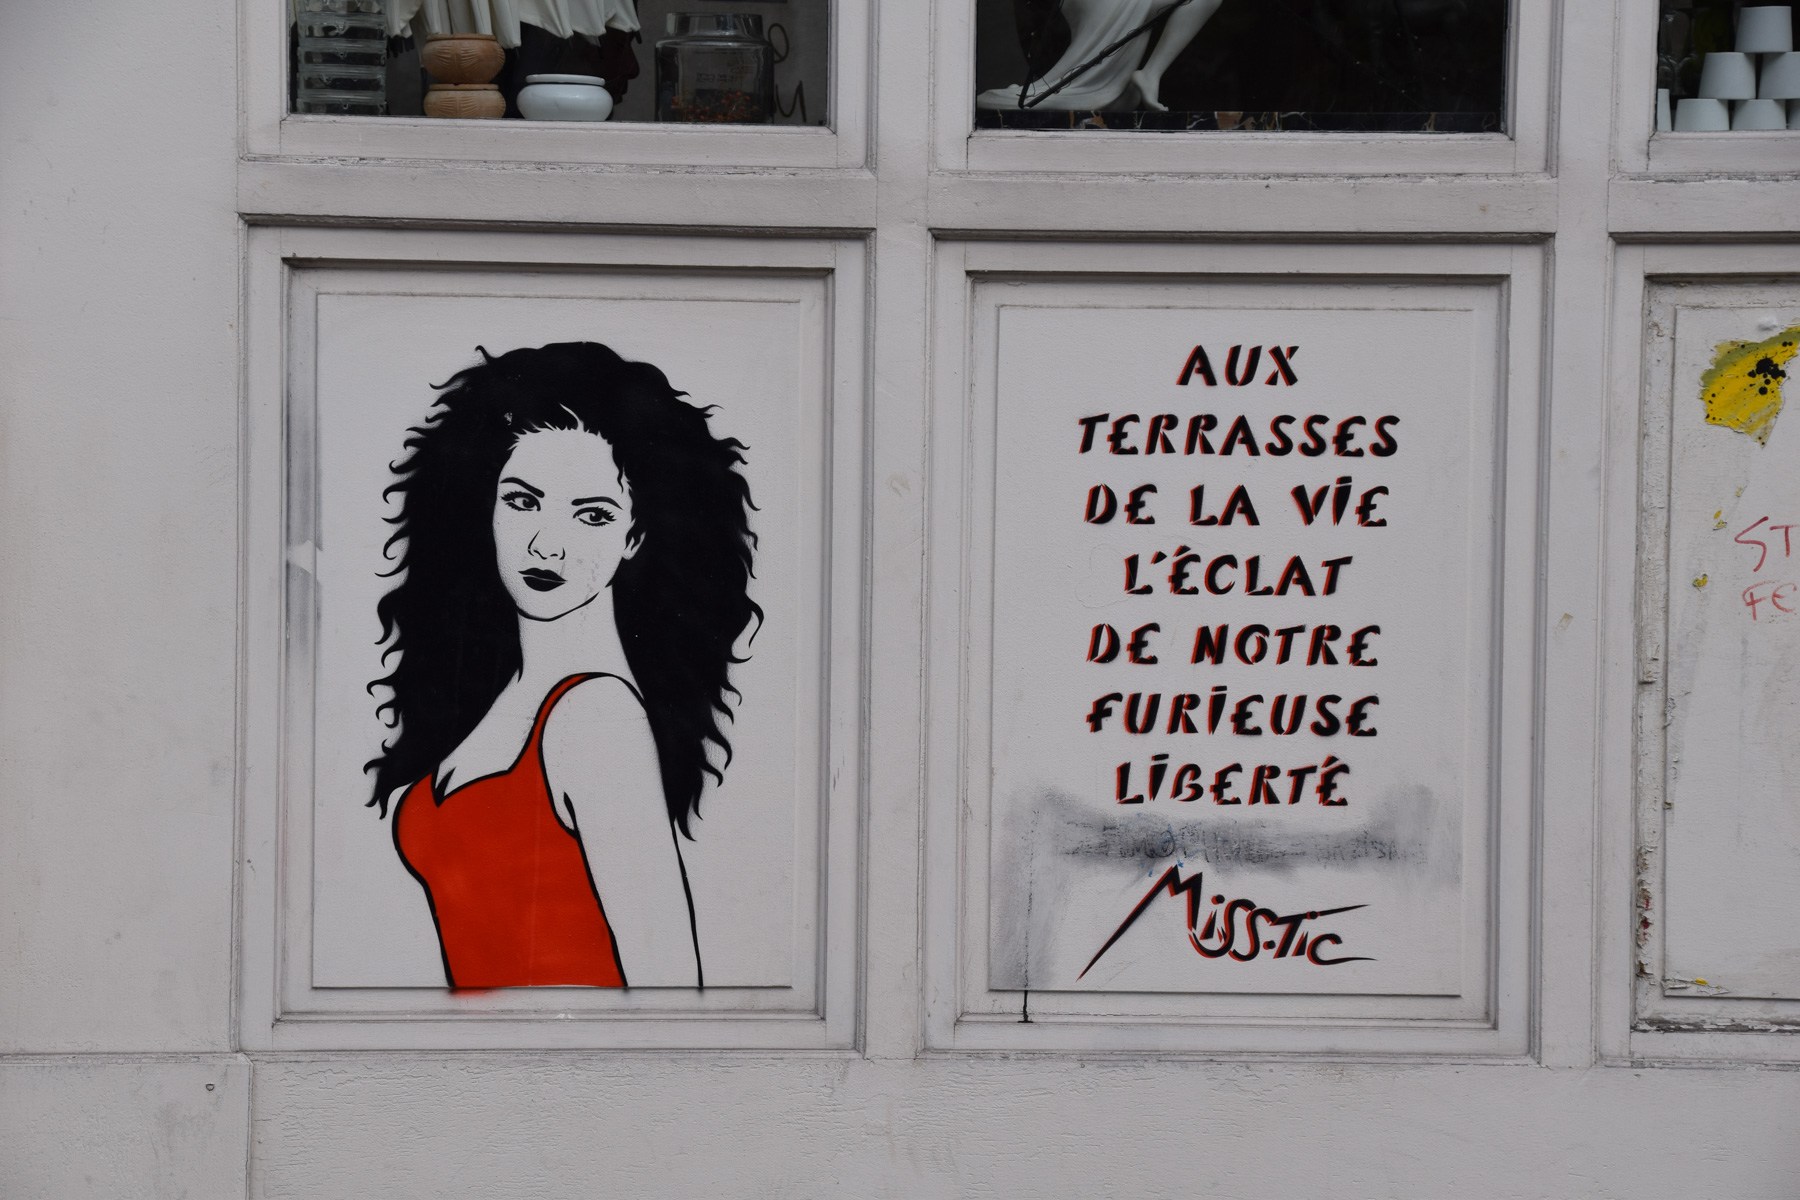 AUX
TERRASSES
DE LA VIE
L'ÉCLAT
DE NOTRE
FURIEUSE
LIBERTÉ
MISS.TIC
ST
FE